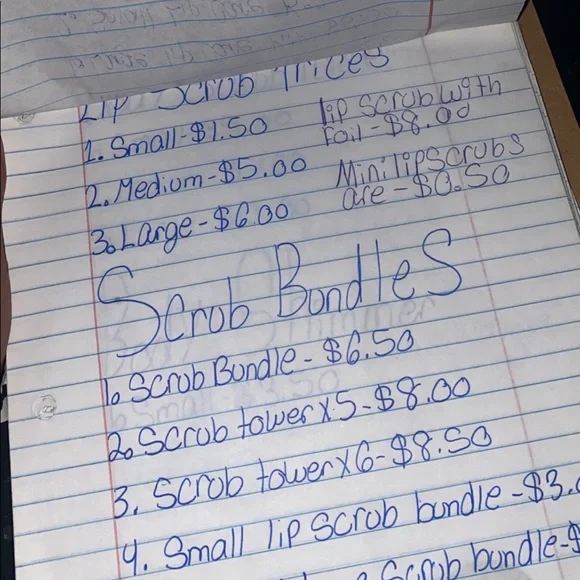 Lip Scrub Prices
1. Small-$1.50
2. Medium-$5.00
3. Large-$6.00
lip scrub with
foil-$8.00
Mini lipscrubs
are-$0.50
Scrub Bundles
1. Scrub Bundle-$6.50
2. Scrub tower x5-$8.00
3. Scrub tower x6-$8.50
4. Small lip scrub bundle-$3.
Scrub bundle-$